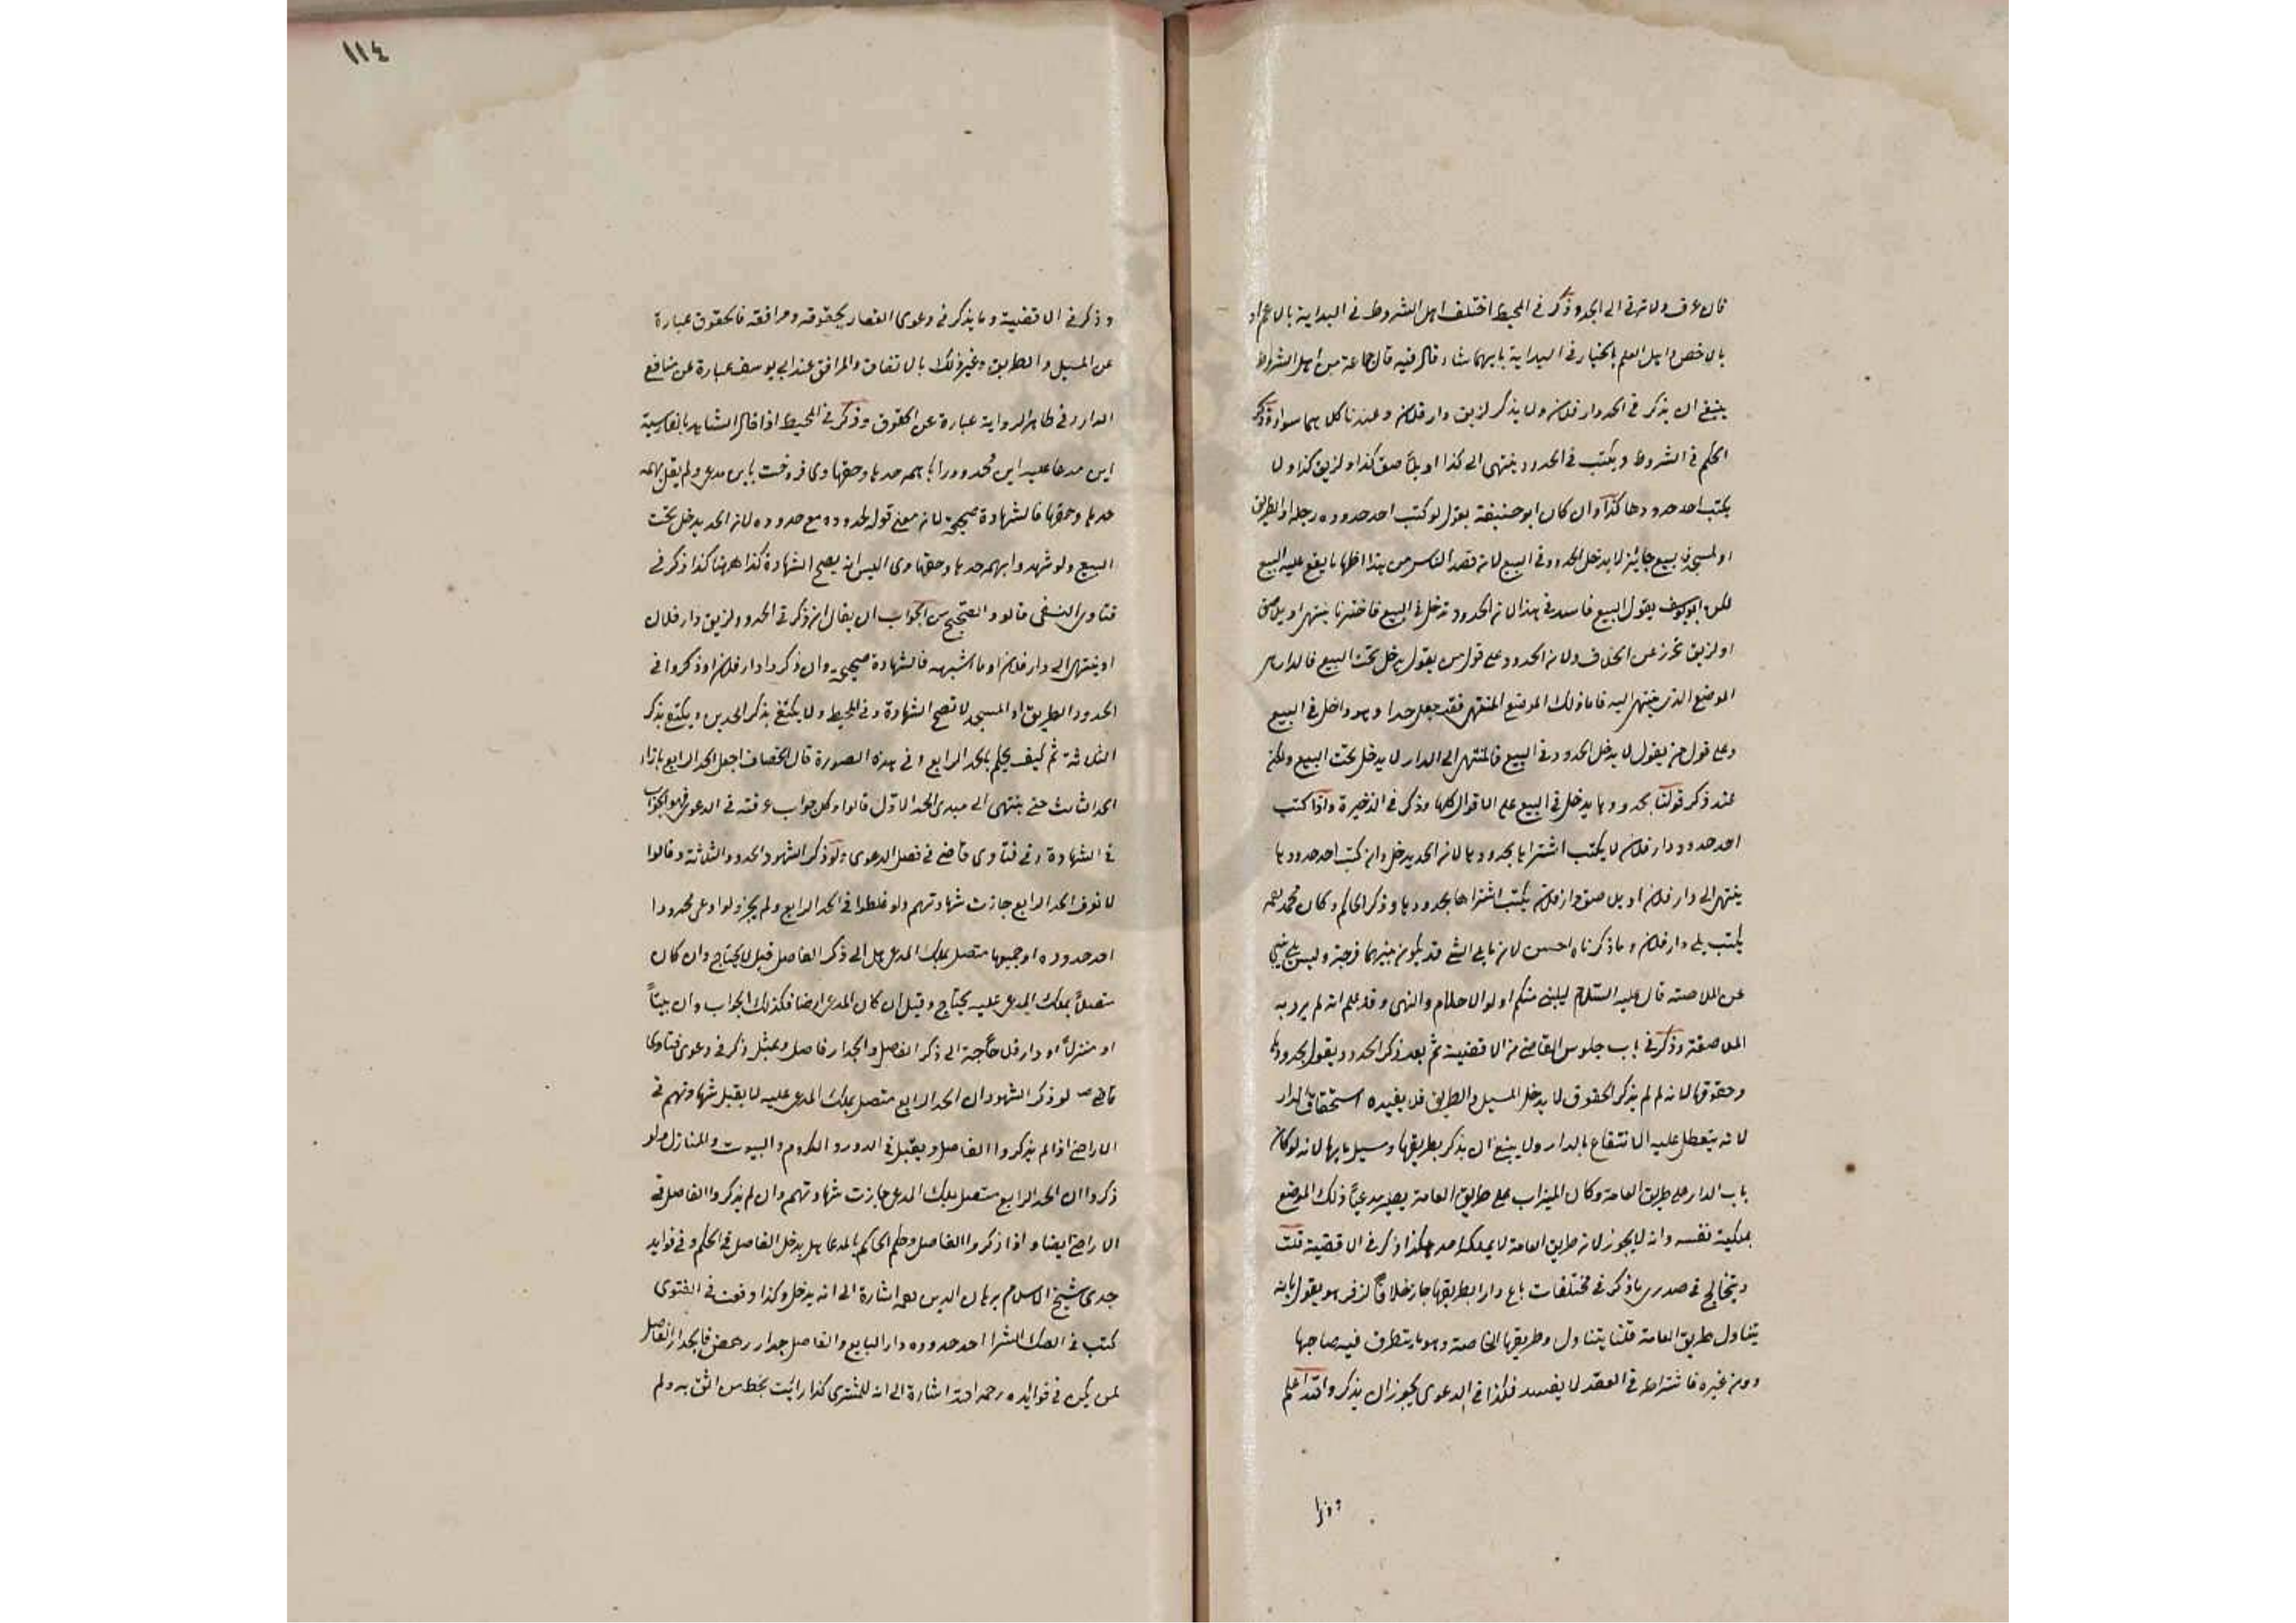 فان عرف ولا ترقى الى الحد وذكر في المحيط اختلف اهل الشروط في البداية بالاعم او
بالاخص واهل العلم بالخيار في البداية بايهما شاء وقال فيه قال جماعة من اهل الشروط
ينبغي ان يذكر في الحد دار فلان ولا يذكر لزيق دار فلان وعندنا كلاهما سواء وذكر
الحاكم في الشروط ويكتب في الحدود ينتهى الى كذا او يلاصق كذا او لزيق كذا ولا
يكتب احد حدودها كذا وان كان ابو حنيفة يقول لو كتب احد حدوده دجلة او الطريق
او المسجد فالبيع جائز لا يدخل الحدود في البيع لان قصد الناس من هذا اظهار ما يقع عليه البيع
لكن ابو يوسف يقول البيع فاسد في هذا لان الحدود تدخل في البيع فاخترنا ينتهى او يلاصق
او لزيق تحرز عن الخلاف ولان الحدود على قول من يقول يدخل تحت البيع فالدار
الموضع الذي ينتهى اليه فاما ذلك الموضع المنتهى فقد جعل حدا وهو داخل في البيع
وعلى قول من يقول لا يدخل الحدود في البيع فالمنتهى الى الدار لا يدخل تحت البيع ولكن
عند ذكر قولنا بحدودها يدخل في البيع على الاقوال كلها وذكر في الذخيرة واذا كتب
احد حدود دار فلان لا يكتب اشتراها بحدودها لان الحد يدخل وان كتب احد حدودها
ينتهى الى دار فلان او يلاصق دار فلان يكتب اشتراها بحدودها وذكر الحاكم وكان محمد رحمه
يكتب يلي دار فلان وما ذكرناه احسن لان ما يلي الشئ قد يكون بينهما فرجة وليس يلي ينبئ
عن الملاصقة قال عليه السلام ليلينى منكم اولوا الاحلام والنهى وقد علم انه لم يرد به
الملاصقة وذكر في باب جلوس القاضى من الاقضية ثم بعد ذكر الحدود ويقول بحدودها
وحقوقها لانه لم لم يذكر الحقوق لا يدخل المسيل والطريق فلا يفيده استحقاق الدار
لانه يتعطل عليه الانتفاع بالدار ولا ينبغى ان يذكر بطريقها ومسيل مايها لانه لو كان
باب الدار على طريق العامة وكان الميزاب على طريق العامة يصير مدعيًا ذلك الموضع
بملكية نفسه وانه لا يجوز لان طريق العامة لا يملكه احد هكذا ذكر في الاقضية قلت
ويتخالج في صدرى ما ذكر في مختلفات باع دارا بطريقها جاز خلافًا لزفر هو يقول بانه
يتناول طريق العامة قلنا يتناول وطريقها الخاصة وهو ما يتطرق فيه صاحبها
دون غيره فاشتراطه في العقد لا يفسد فكذا في الدعوى يجوز ان يذكر والله اعلم
وذكر
١١٤
وذكر في الاقضية وما يذكر في دعوى العقار بحقوقه ومرافقه فالحقوق عبارة
عن المسيل والطريق وغير ذلك بالاتفاق والمرافق عند ابى يوسف عبارة عن منافع
الدار وفي ظاهر الرواية عبارة عن الحقوق وذكر في المحيط اذا قال الشاهد بالفارسية
اين مدعا عليه اين محدود را با همه حدها وحقها وى فروخت باين مدعى ولم يقل بهمه
حدها وحقها فالشهادة صحيحة لان معنى قوله محدوده مع حدوده لان الحد يدخل تحت
البيع ولو شهدوا بهمه حدها وحقها وى اليس انه يصح الشهادة كذا ههنا كذا ذكر في
فتاوى النسفى قالوا والصحيح من الجواب ان يقال ان ذكر في الحدود لزيق دار فلان
او ينتهى الى دار فلان او ما اشبهه فالشهادة صحيحة وان ذكروا دار فلان او ذكروا في
الحدود الطريق او المسجد لا تصح الشهادة وفي المحيط ولا يكتفى بذكر الحدين ويكتفى بذكر
الثلاثة ثم كيف يحكم بالحد الرابع في هذه الصورة قال الخصاف اجعل الحد الرابع بازاء
الحد الثالث حتى ينتهى الى مبدى الحد الاول قالوا وكل جواب عرفته في الدعوى فهو الجواب
في الشهادة وفي فتاوى قاضى في فصل الدعوى ولو ذكر الشهود الحدود الثلاثة وقالوا
لا نعرف الحد الرابع جازت شهادتهم ولو غلطوا في الحد الرابع ولم يجز ولو ادعى محدودا
احد حدوده او جميعها متصل بملك المدعى هل الى ذكر الفاصل قيل لا يحتاج وان كان
متصلاً بملك المدعى عليه يحتاج وقيل ان كان المدعى ارضا فكذلك الجواب وان بيتاً
او منزلاً او دار فلا حاجة الى ذكر الفصل والجدار فاصل وبمثل ذكر في دعوى فتاوى
قاضى لو ذكر الشهود ان الحد الرابع متصل بملك المدعى عليه لا يقبل شهادتهم في
الاراضى اذا لم يذكروا الفاصل ويقبل في الدور والكروم والبيوت والمنازل ولو
ذكروا ان الحد الرابع متصل بملك المدعى جازت شهادتهم وان لم يذكروا الفاصل في
الاراضى ايضا واذا ذكروا الفاصل وحكم الحاكم بالمدعا هل يدخل الفاصل في الحكم وفي فوايد
جدى شيخ الاسلام برهان الدين رحمه اشارة الى انه يدخل وكذا وقعت في الفتوى
كتب في الصك الشرا احد حدوده دار البايع والفاصل جدار رهص فالجدار الفاصل
لمن يكون في فوائده رحمه الله اشارة الى انه للمشترى كذا رايت بخط من اثق به ولم